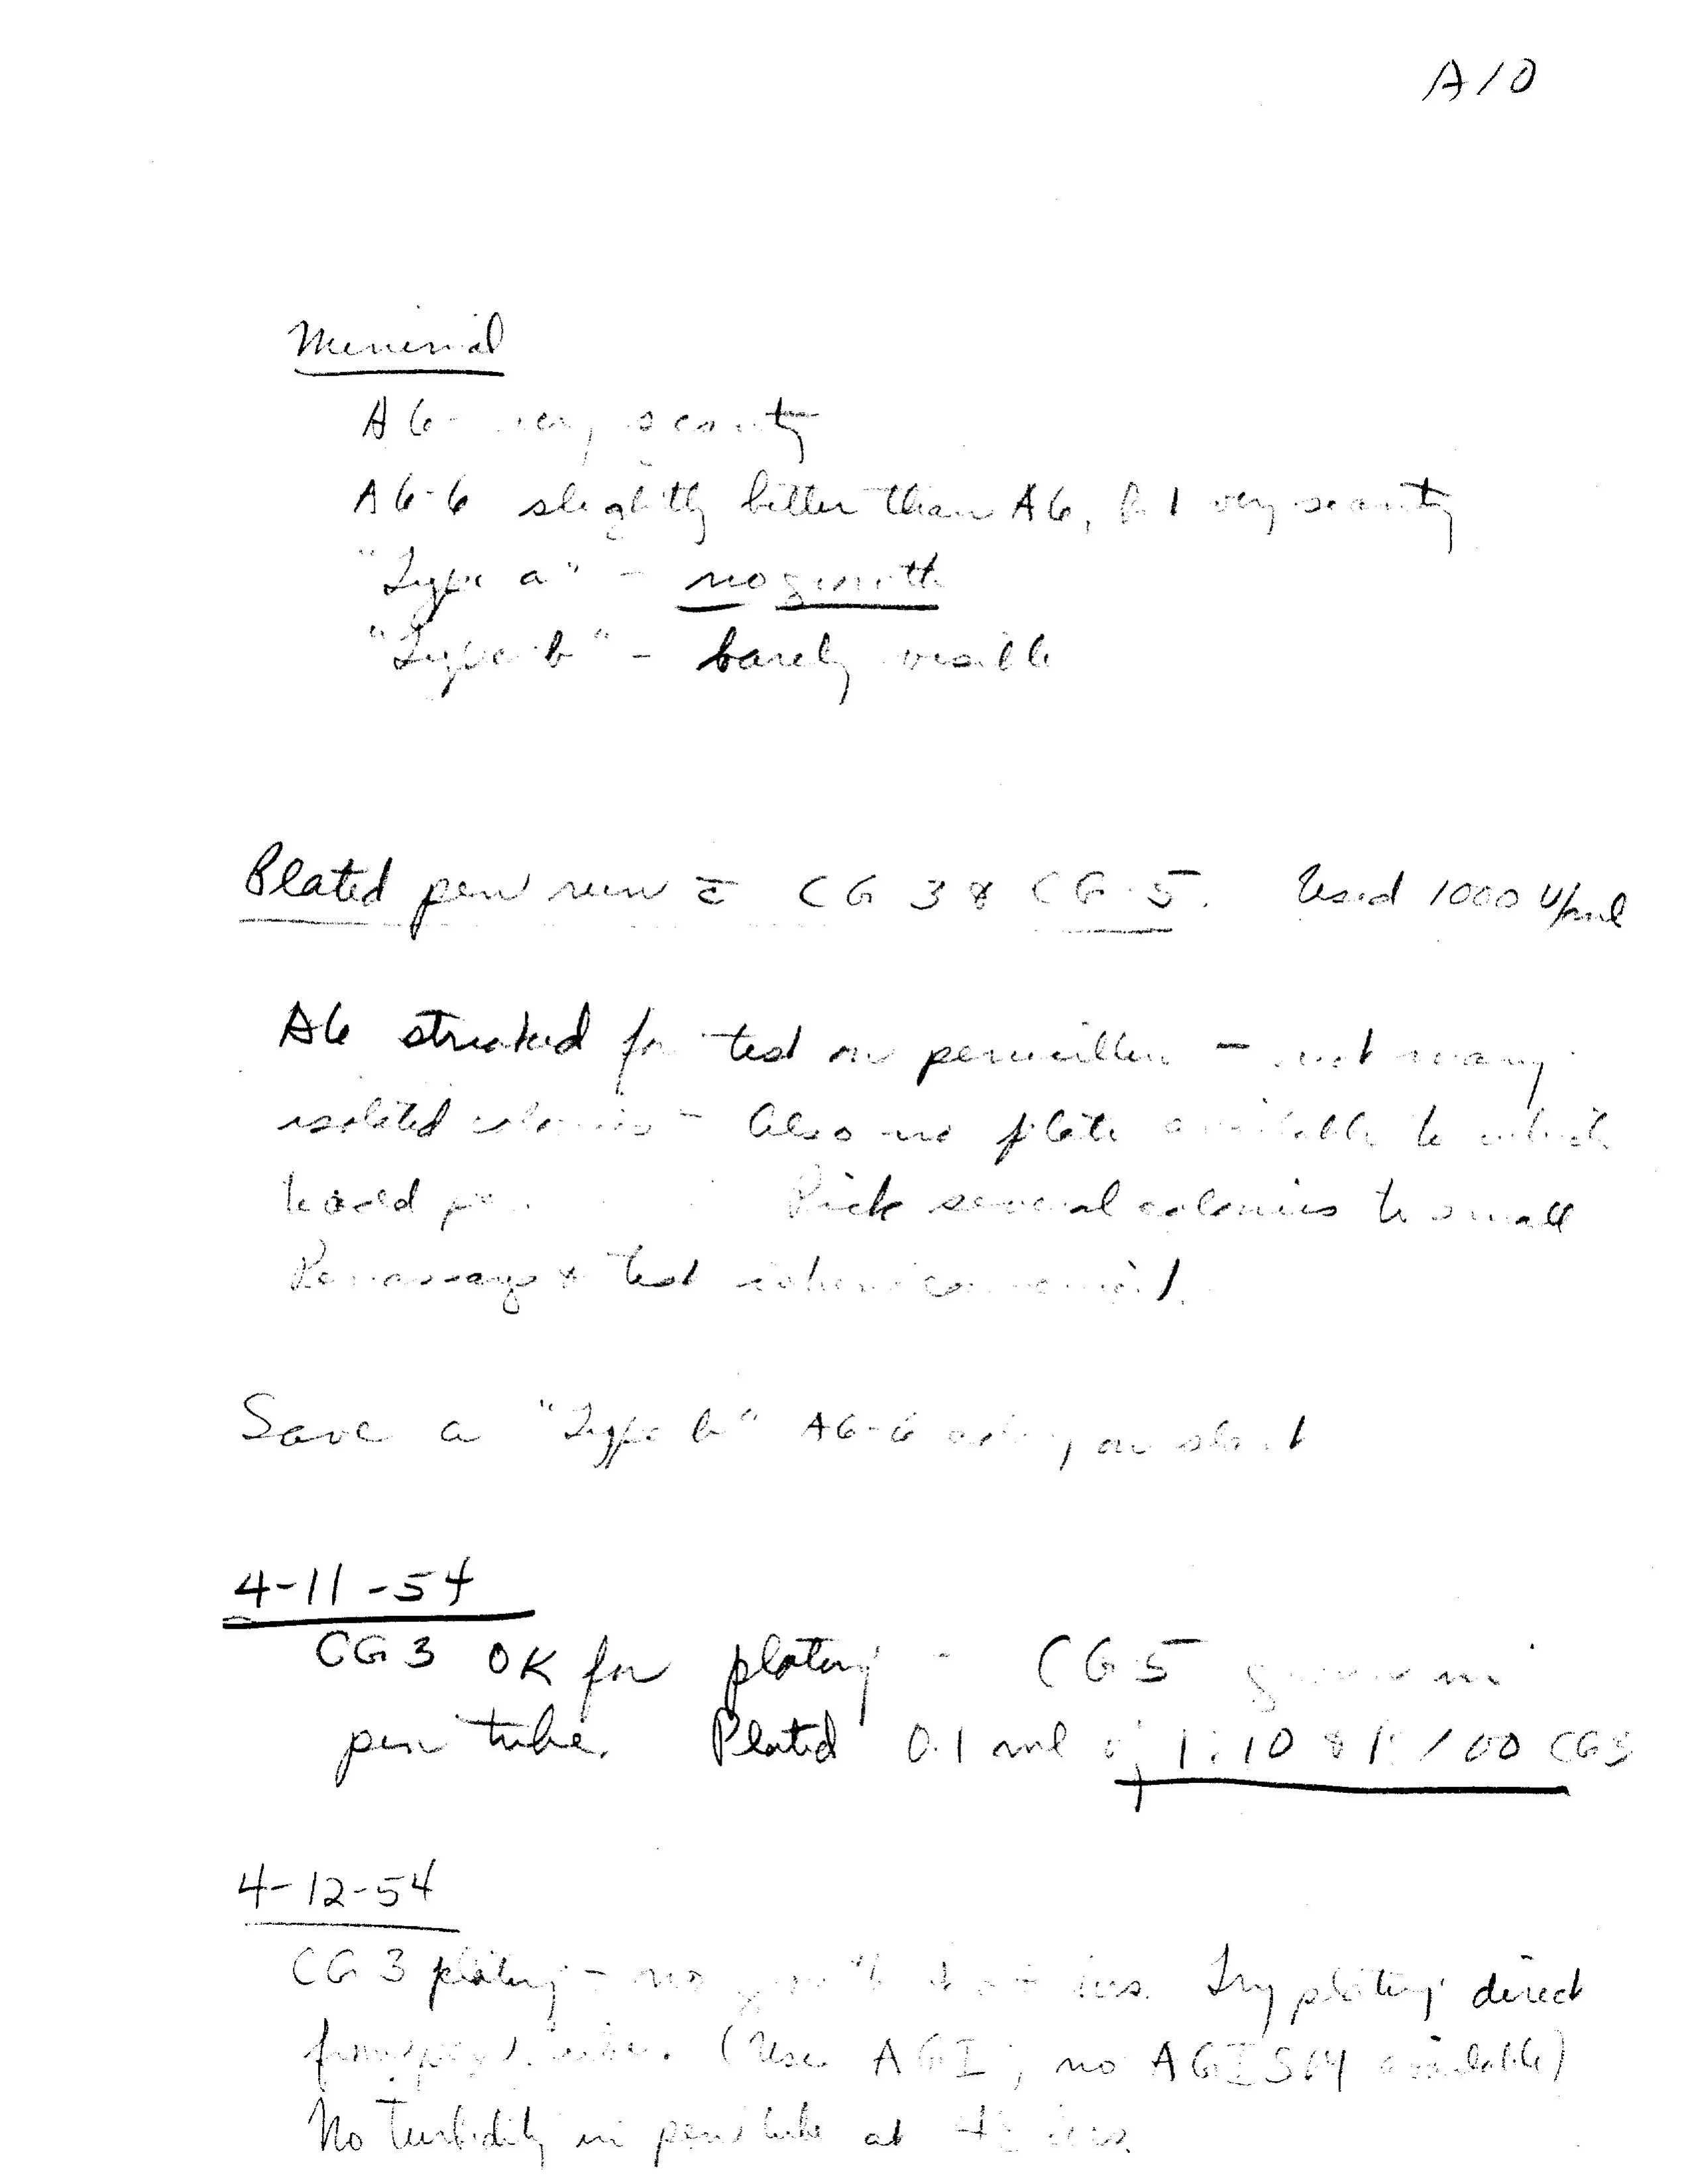 A10
Minimal
A6 - very scanty
A6-6 slightly better than A6, but very scanty
"Type a" - no growth
"Type b" - barely visible
Plated pen run c̄ CG 3 & CG-5. Used 1000 U/ml
A6 streaked for test on penicillin - not many
isolated colonies - Also no plate available to which
to add pen. Pick several colonies to small
Penassays & test when convenient.
Save a "Type b" A6-6 colony on slant
4-11-54
CG 3 OK for plating - CG5 grew in
pen tube. Plated 0.1 ml of 1:10 & 1:100 CG3
4-12-54
CG 3 plating - no growth at hrs. Try plating direct
from pen tube. (Use AGI; no AGISM available)
No turbidity in pen tube at hrs.